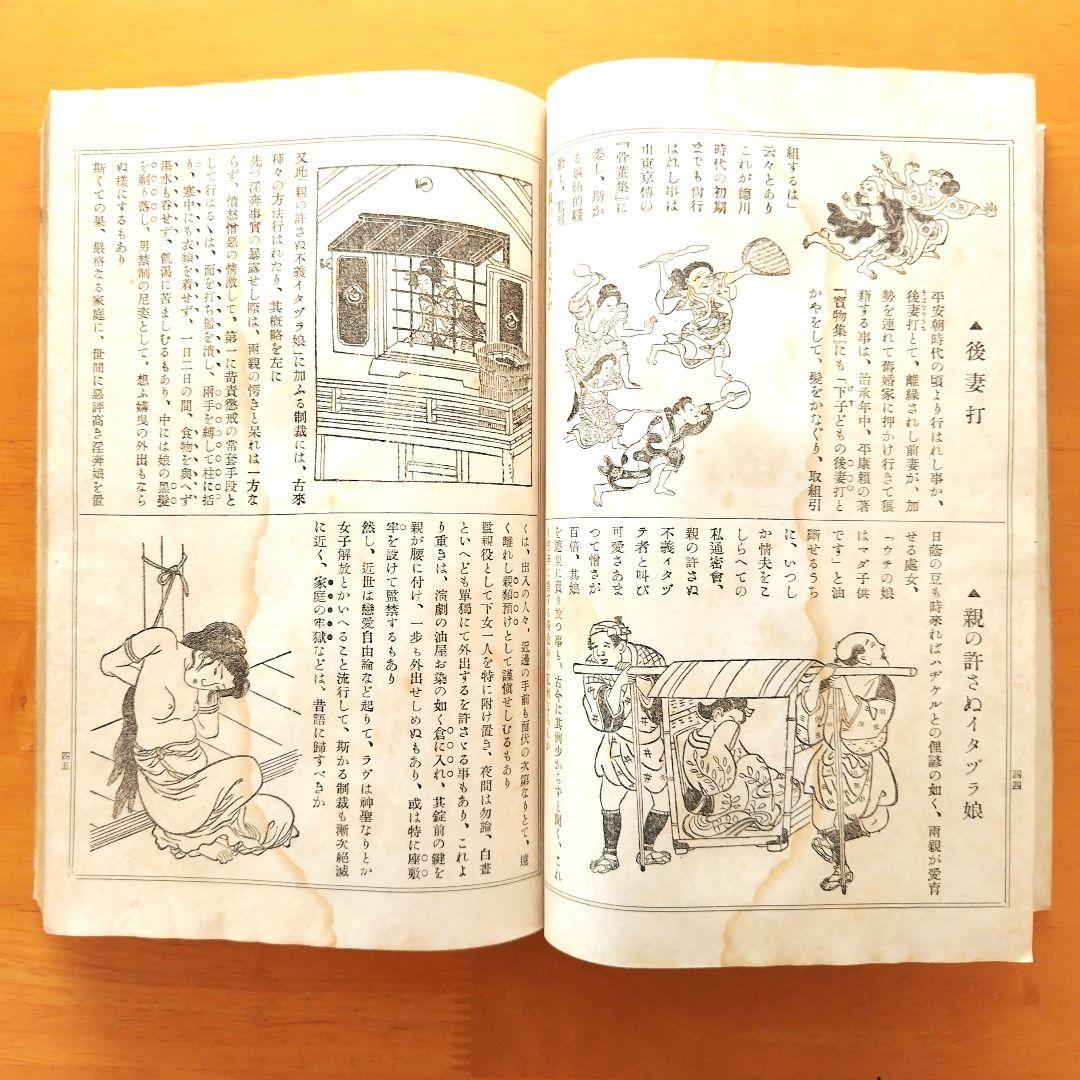 ▲後妻打
平安朝時代の頃より行はれし事か、
後妻打とて、離緣されし前妻が、加
勢を連れて舊婚家に押かけ行きて狼
藉する事は、治承年中、平康賴の著
『寶物集』にも「下子どもの後妻打と
かやをして、髮をかなぐり、取組引
組するは」
云々とあり
これが德川
時代の初期
までも尙行
はれし事は
山東京傳の
『骨董集』に
委し、斯か
▲親の許さぬイタヅラ娘
日蔭の豆も時來ればハヂケルとの俚諺の如く、兩親が愛育
せる處女、
「ウチの娘
はマダ子供
です」と油
斷せるうち
に、いつし
か情夫をこ
しらへての
私通密會、
親の許さぬ
不義イタヅ
ラ者と叫び
可愛さあま
つて憎さが
百倍、其娘
を遊里に賣り放つ事も、古今に其例少からずと聞く、これ
四四
又此「親の許さぬ不義イタヅラ娘」に加ふる制裁には、古來
種々の方法行はれたり、其槪略を左に
先づ淫奔事實の暴露せし際は、兩親の愕きと呆れは一方な
らず、憤怒憎惡の情激して、第一に苛責懲戒の常套手段と
して行はるゝは、面を打ち髷を潰し、兩手を縛して柱に括
り、寒中にも衣類を着せず、一日二日の間、食物を與へず
湯水も呑せず、飢渴に苦ましむるもあり、中には娘の黑髮
を剃り落し、男禁制の尼姿として、想ふ嬌曳の外出もなら
ぬ樣にするもあり
斯くての果、嚴格なる家庭に、世間に惡評高き淫奔娘を置
くは、出入の人々、近邊の手前も面伏の次第なりとて、遠
く離れし親類預けとして謹愼せしむるもあり
監視役として下女一人を特に附け置き、夜間は勿論、白晝
といへども單獨にて外出するを許さゞる事もあり、これよ
り重きは、演劇の油屋お染の如く倉に入れ、其錠前の鍵を
親が腰に付け、一步も外出せしめぬもあり、或は特に座敷
牢を設けて監禁するもあり
然し、近世は戀愛自由論など起りて、ラヴは神聖なりとか
女子解放とかいへること流行して、斯かる制裁も漸次絕滅
に近く、家庭の牢獄などは、昔語に歸すべきか
四五